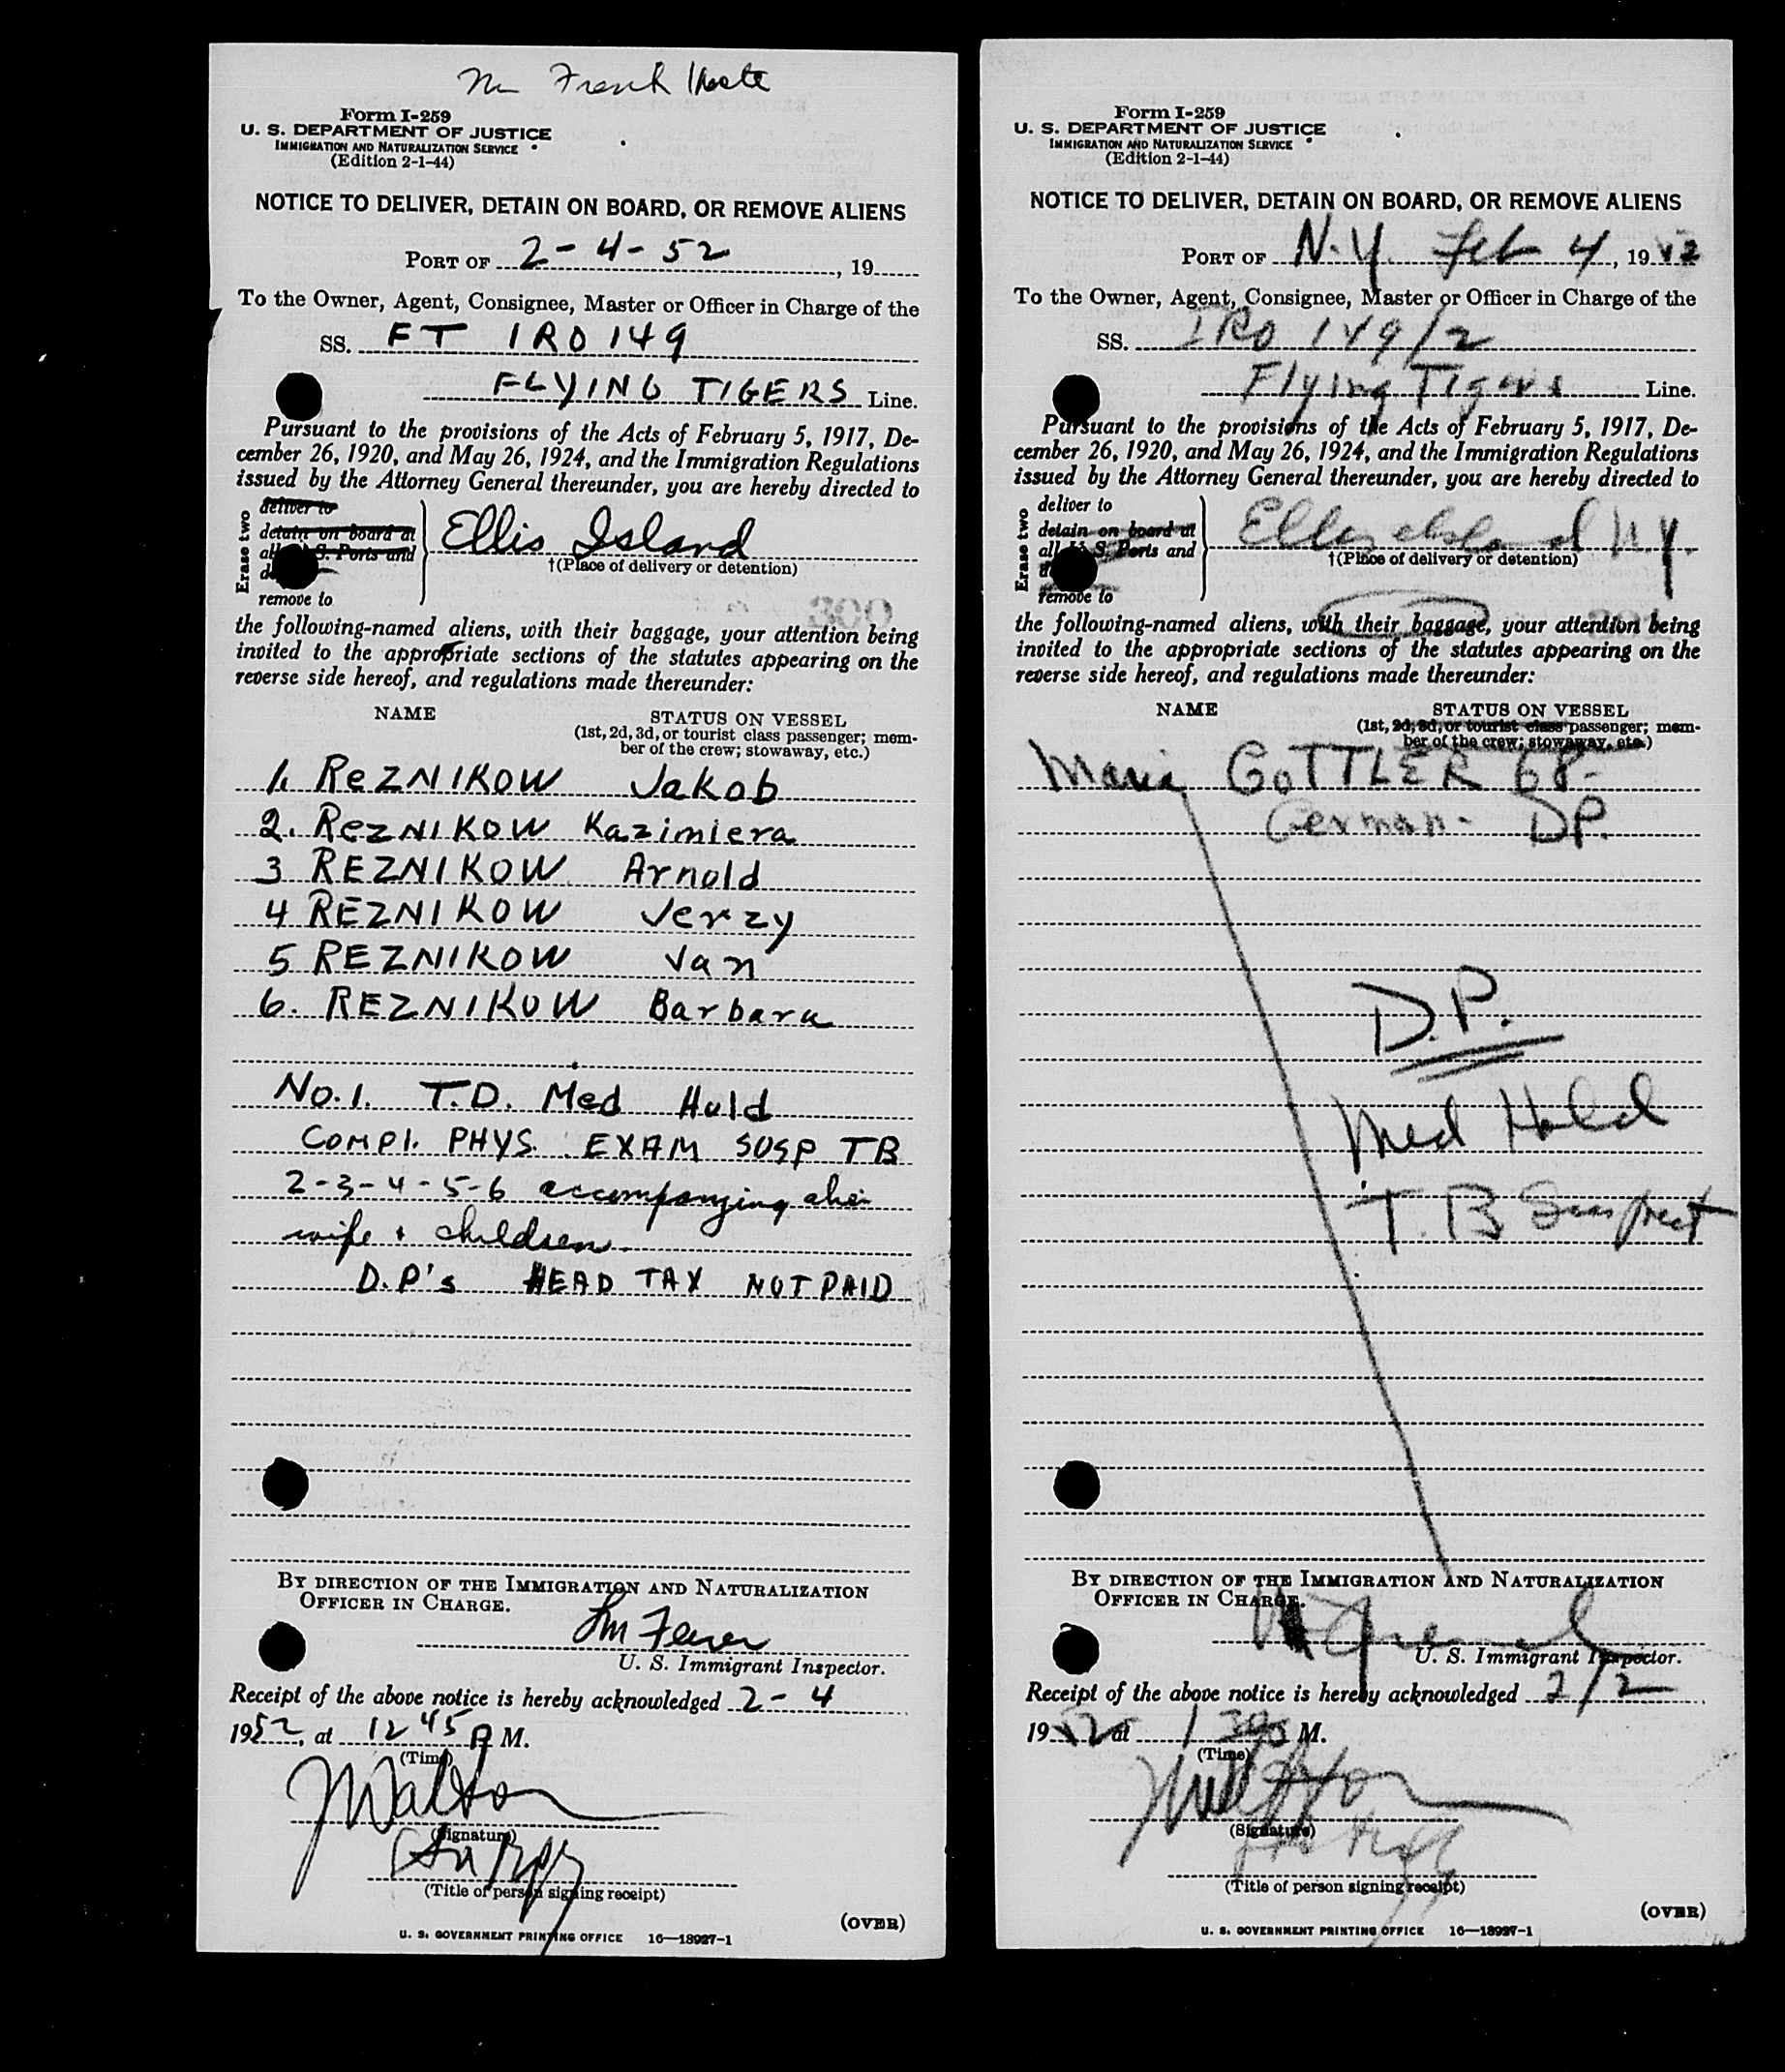 Form I-259
U. S. DEPARTMENT OF JUSTICE
IMMIGRATION AND NATURALIZATION SERVICE
(Edition 2-1-44)
NOTICE TO DELIVER, DETAIN ON BOARD, OR REMOVE ALIENS
PORT OF 2-4-52, 19
To the Owner, Agent, Consignee, Master or Officer in Charge of the
SS. FT IRO 149
FLYING TIGERS Line.
Pursuant to the provisions of the Acts of February 5, 1917, De-
cember 26, 1920, and May 26, 1924, and the Immigration Regulations
issued by the Attorney General thereunder, you are hereby directed to
Erase two
deliver to
detain on board at
all U. S. Ports and
remove to
Ellis Island
†(Place of delivery or detention)
the following-named aliens, with their baggage, your attention being
invited to the appropriate sections of the statutes appearing on the
reverse side hereof, and regulations made thereunder:
NAME STATUS ON VESSEL
(1st, 2d, 3d, or tourist class passenger; mem-
ber of the crew; stowaway, etc.)
1. REZNIKOW Jakob
2. REZNIKOW Kazimiera
3 REZNIKOW Arnold
4 REZNIKOW Jerzy
5 REZNIKOW Jan
6. REZNIKOW Barbara
No. 1. T.D. Med Hold
COMPL. PHYS. EXAM SUSP TB
2-3-4-5-6 accompanying
wife + children.
D.P's HEAD TAX NOT PAID
BY DIRECTION OF THE IMMIGRATION AND NATURALIZATION
OFFICER IN CHARGE.
U. S. Immigrant Inspector.
Receipt of the above notice is hereby acknowledged 2-4
1952, at 12 45 P M.
(Time)
JWalton
(Signature)
(Title of person signing receipt)
(OVER)
U. S. GOVERNMENT PRINTING OFFICE 16—18927-1
Form I-259
U. S. DEPARTMENT OF JUSTICE
IMMIGRATION AND NATURALIZATION SERVICE
(Edition 2-1-44)
NOTICE TO DELIVER, DETAIN ON BOARD, OR REMOVE ALIENS
PORT OF N.Y. Feb 4, 1952
To the Owner, Agent, Consignee, Master or Officer in Charge of the
SS. IRO 149/2
Flying Tigers Line.
Pursuant to the provisions of the Acts of February 5, 1917, De-
cember 26, 1920, and May 26, 1924, and the Immigration Regulations
issued by the Attorney General thereunder, you are hereby directed to
Erase two
deliver to
detain on board at
all U. S. Ports and
remove to
Ellis Island N.Y.
†(Place of delivery or detention)
the following-named aliens, with their baggage, your attention being
invited to the appropriate sections of the statutes appearing on the
reverse side hereof, and regulations made thereunder:
NAME STATUS ON VESSEL
(1st, 2d, 3d, or tourist class passenger; mem-
ber of the crew; stowaway, etc.)
Maria GOTTLER 68-
German - DP.
D.P.
Med Hold
T.B Suspect
BY DIRECTION OF THE IMMIGRATION AND NATURALIZATION
OFFICER IN CHARGE.
U. S. Immigrant Inspector.
Receipt of the above notice is hereby acknowledged 2/2
1952 at 1 30 M.
(Time)
(Signature)
(Title of person signing receipt)
(OVER)
U. S. GOVERNMENT PRINTING OFFICE 16—18927-1